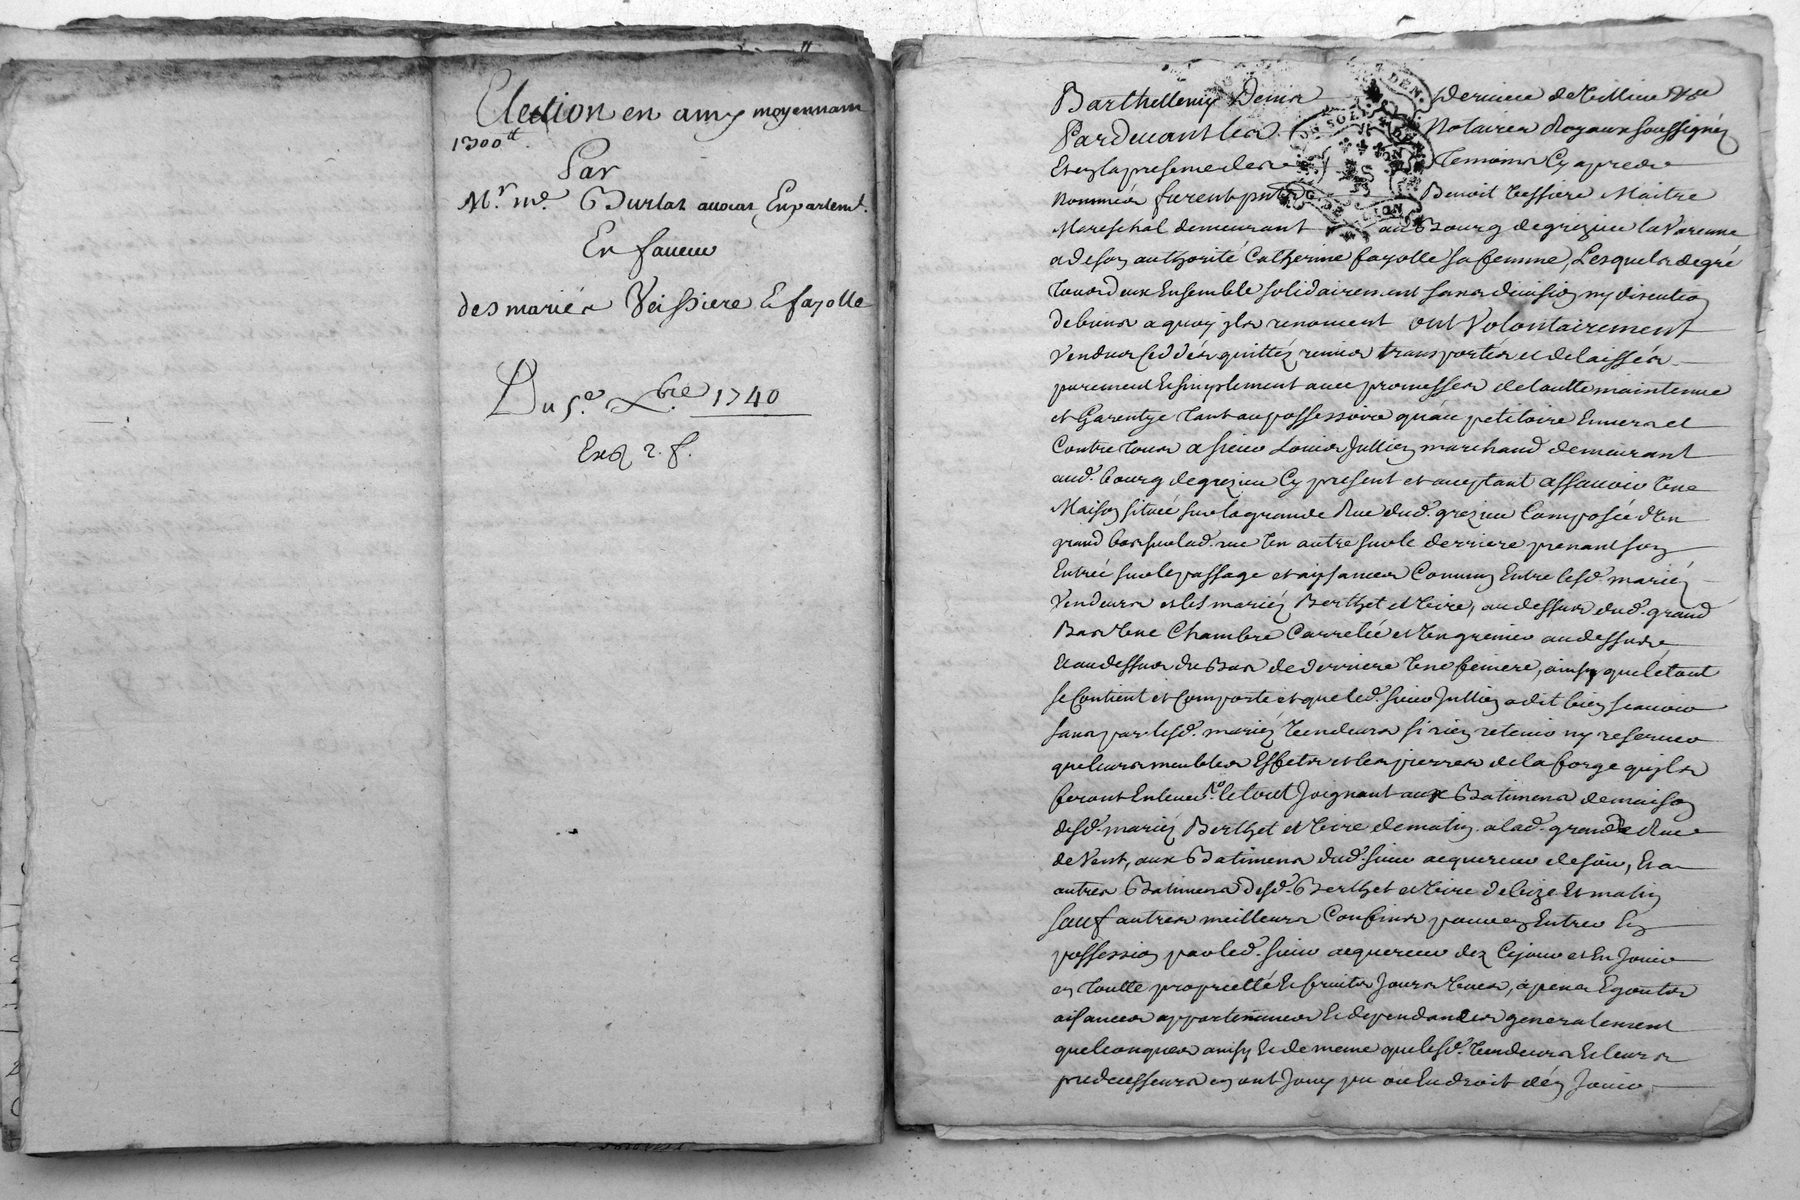 Election en amy moyennant
1300ᵗᵗ.
Par
Mʳ. mᵉ. Burlat avocat En parlemᵗ.
En faveur
des mariés Veissiere & fayolle
Du 5ᵉ. Xbre. 1740
Exp 2. f.
Barthellemy Denis
Pardevant les Notaires Royaux soussignés
Et en la presence des temoins Cy apres
Nommés furent pnts Benoit Teissiere Maitre
Mareschal demeurant au Bourg de grezieu la Varenne
& de son authorité Catherine fayolle sa femme, Lesquels de gré
tous deux Ensemble solidairement sans division ny discution
de biens a quoy ils renoncent ont Volontairement
Vendus Ceddés quittés remis transportés et delaissés
purement & simplement avec promesses de toutte maintenue
et Garentye tant au possessoire qu'au petitoire Envers et
Contre tous a sieur Louis Jullien marchand demeurant
aud. bourg de grezieu Cy present et acceptant assavoir Une
Maison situeé sur la grande Rue dud. grezieu Composée d'Un
grand bas sur lad. rue Un autre sur le derriere prenant son
Entrée sur le passage et aysances Commun Entre lesd. mariés
Vendeurs et les mariés Berthet et Vire, au dessus dud. grand
Bas Une Chambre Carrelée et Un grenier au dessus,
Et au dessus du Bas de derriere Une feniere, ainsy que le tout
se Contient et Comporte et que led. sieur Jullien a dit bien scavoir
sans par lesd. mariés Vendeurs si rien retenir ny reserver
que leurs meubles Effets et les pierres de la forge qu'ils
feront Enlever le tout Joignant aux Batimens de maison
desd. mariés Berthet et Vire de matin a lad. grande Rue
de Vent, aux Batimens dud. sieur acquereur de soir, Et a
autres Batimens desd. Berthet et Vire de bize Et matin
sauf autres meilleurs Confins pour en Entrer En
possession par led. sieur acquereur dez Cejour et En Jouir
en toutte proprietté & fruits Jours Vues, apens Egouts
aisances appartenances & dependances generalement
quelconques ainsy & de meme que lesd. Vendeurs & leurs
predecesseurs en ont Jouy pu ou En droit d'en Jouir